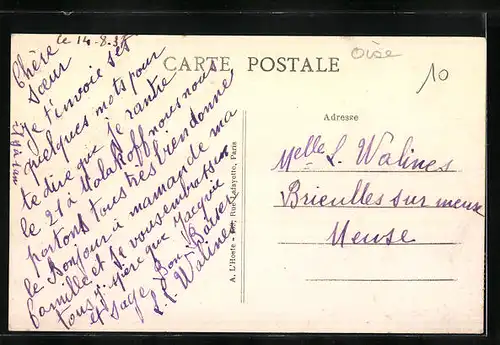 le 14-8.
CARTE POSTALE
Oise
10
Chère
sœur
Je t'envoie ses
quelques mots pour
te dire que je rantre
le 21 à Malakoff nous nous
portons tous tres bien donne
le Bonjour à maman de ma
famille et je vous embrasse
tous j'espère que Jacquie
et sage Bon Baver
L Walines
A. L'Hoste - Rue Lafayette, Paris
Adresse
Melle L. Walines
Brieulles sur meuse
Meuse